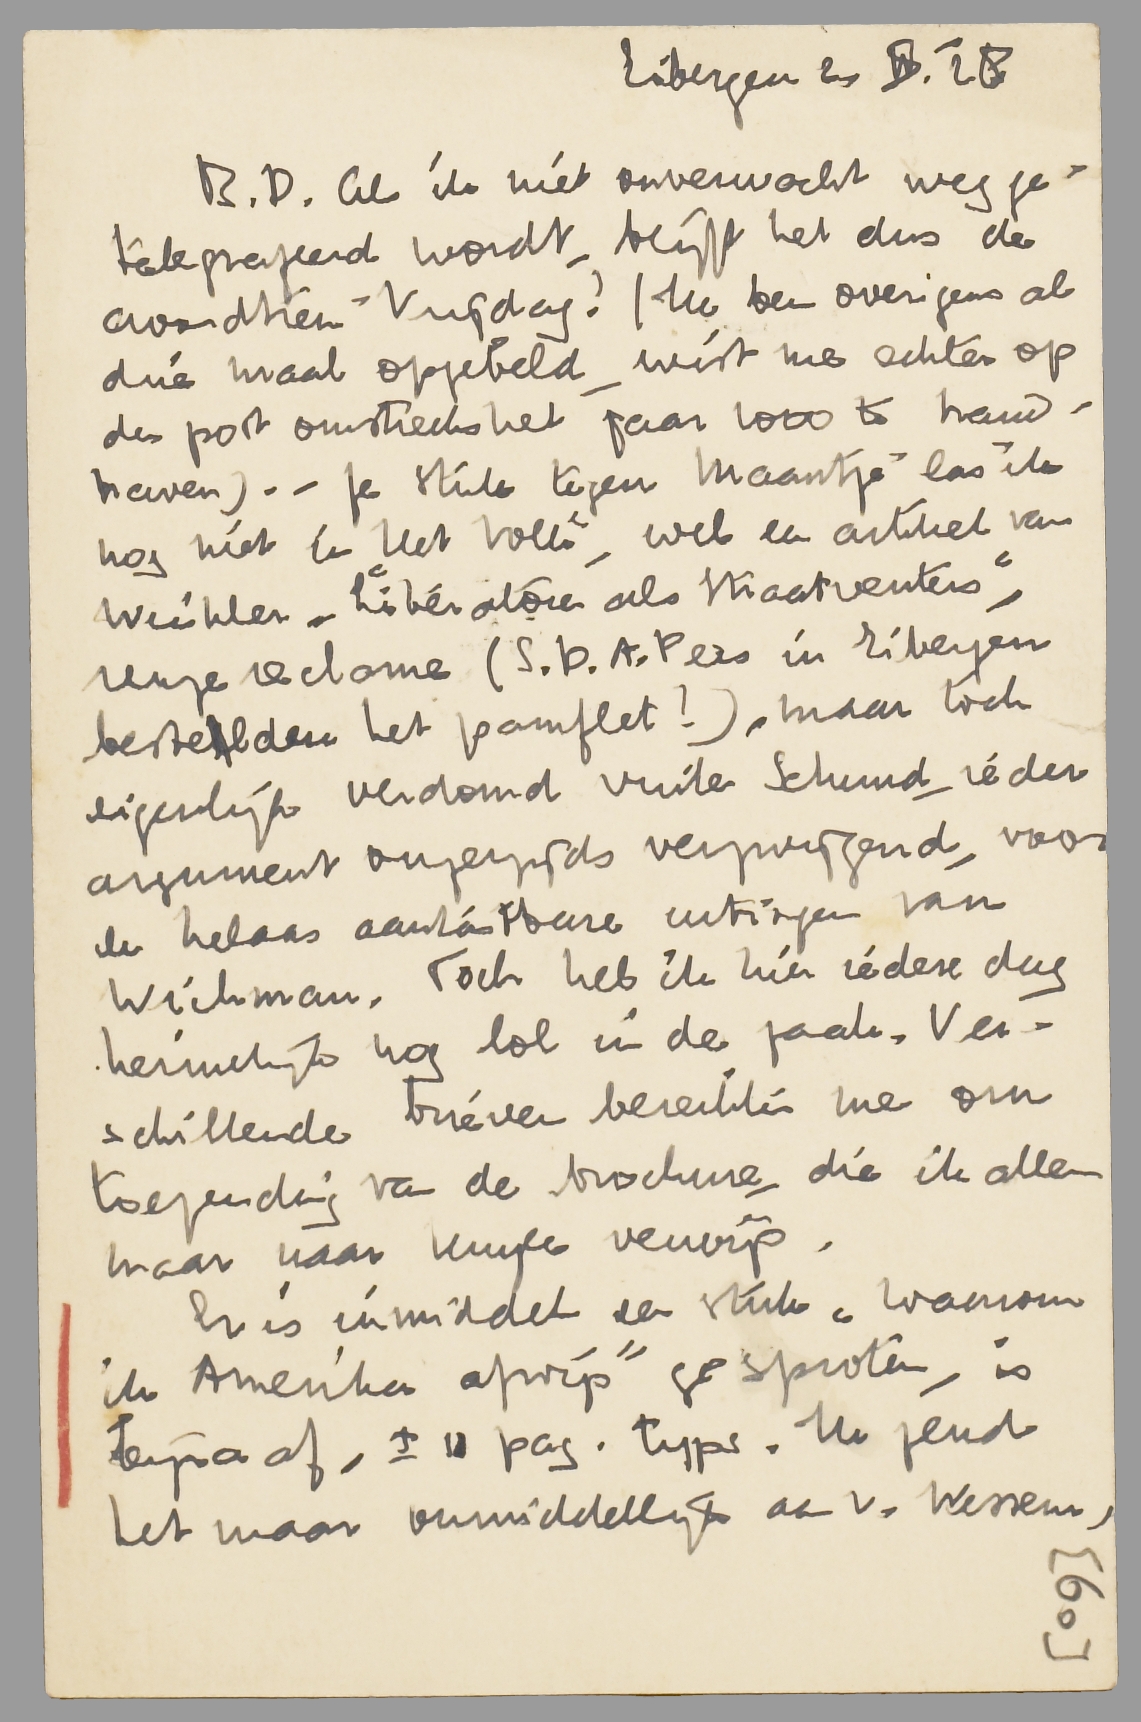 Eibergen 22 IV. 28
B.D. Als ik niet onverwacht wegge-
telegrafeerd wordt, blijft het dus de
avondtrein Vrijdag? (Ik ben overigens al
drie maal opgebeld, wist me echter op
de post omstreeks het jaar 1000 te hand-
haven). - Je stuk tegen Maantje las ik
nog niet in Het Volk, wel een artikel van
Winkler „Literatoren als Straatventers",
renge reclame (S.D.A.Pers in Eibergen
bestelden het pamflet!), maar toch
eigenlijk verdomd vuile Schund, ieder
argument onzerzijds verzwijgend, voor
de helaas aantastbare uitingen van
Wichman. Toch heb ik hier iedere dag
heimelijk nog lol in de zaak. Ver-
schillende brieven bereikten me om
toezending van de brochure, die ik allen
maar naar Kuyle verwijs.
Er is inmiddels een stuk „Waarom
ik Amerika afwijs" gesproten, is
bijna af, ± 11 pag. type. Ik zend
het maar onmiddellijk aan v. Wessem,
[60]